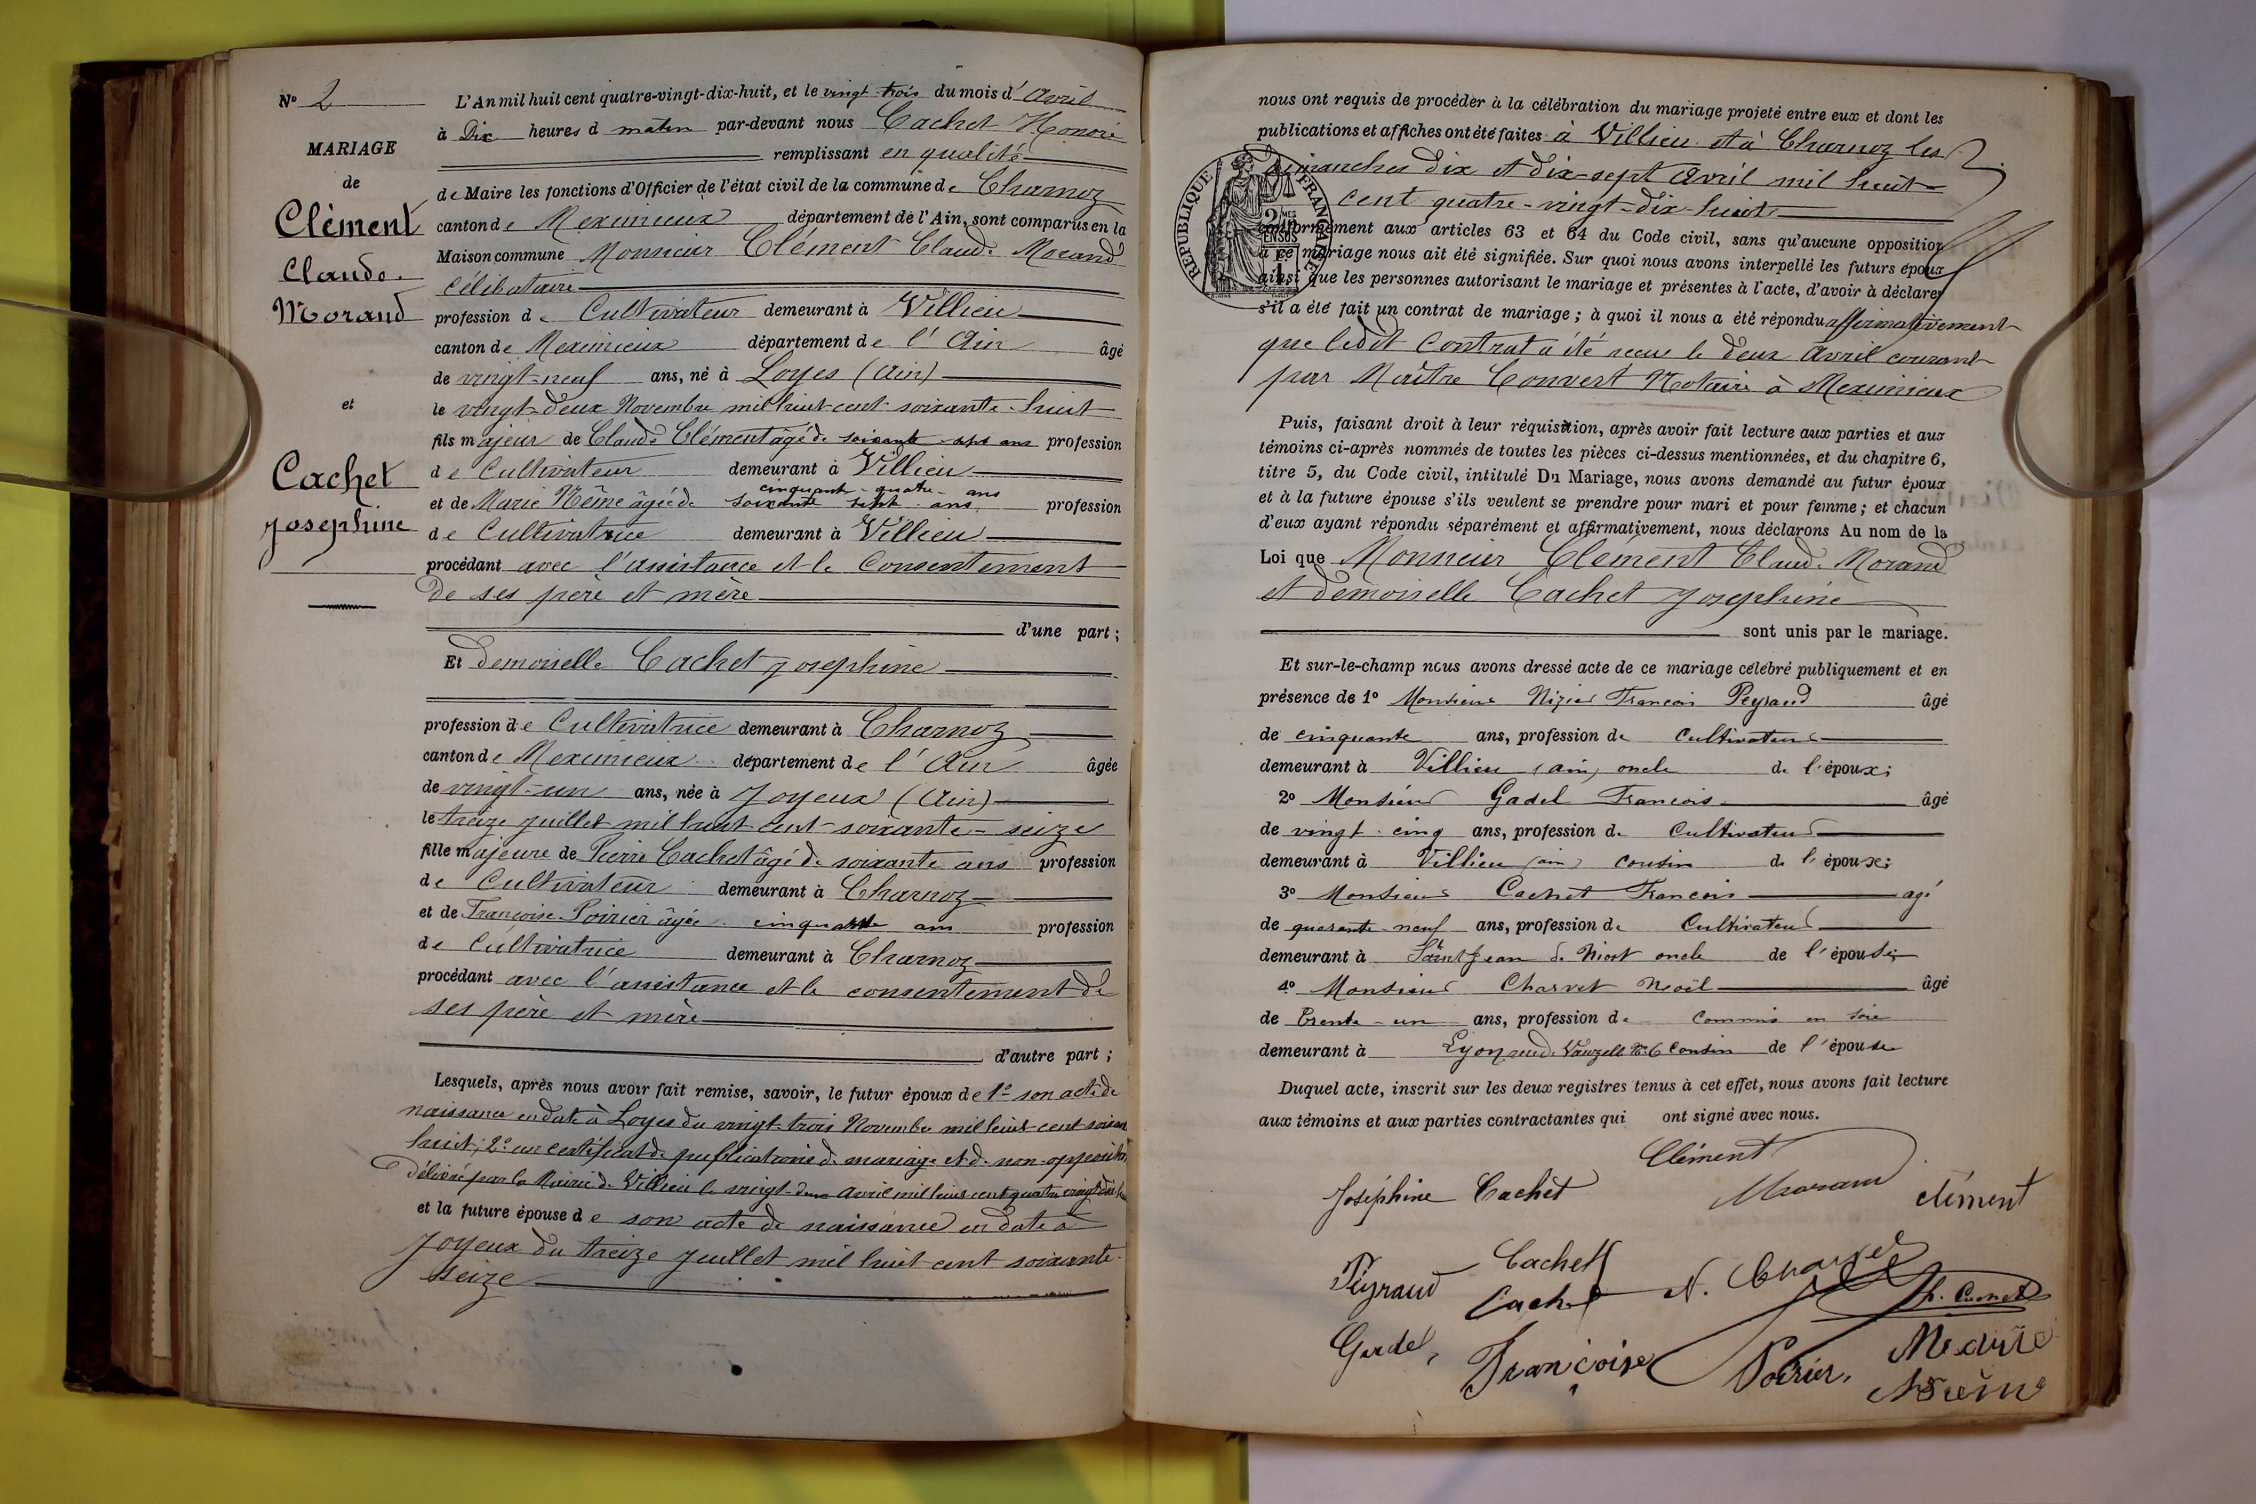 N° 2
MARIAGE
de
Clément
Claude
Morand
et
Cachet
Josephine
L'An mil huit cent quatre-vingt-dix-huit, et le vingt trois du mois d'Avril
à Dix heures d matin par-devant nous Cachet Honoré
remplissant en qualité
de Maire les fonctions d'Officier de l'état civil de la commune de Charnoz
canton de Meximieux département de l'Ain, sont comparus en la
Maison commune Monsieur Clément Claude Morand
Célibataire
profession de Cultivateur demeurant à Villieu
canton de Meximieux département de l'Ain âgé
de vingt-neuf ans, né à Loyes (Ain)
le vingt-deux Novembre mil huit cent soixante-huit
fils majeur de Claude Clément âgé de soixante sept ans profession
de Cultivateur demeurant à Villieu
cinquante-quatre ans
et de Marie Nême âgée de soixante sept ans profession
de Cultivatrice demeurant à Villieu
procédant avec l'assistance et le Consentement
de ses père et mère
d'une part ;
Et demoiselle Cachet Josephine
profession de Cultivatrice demeurant à Charnoz
canton de Meximieux département de l'Ain âgée
de vingt-un ans, née à Joyeux (Ain)
le treize Juillet mil huit cent soixante-seize
fille majeure de Pierre Cachet âgé de soixante ans profession
de Cultivateur demeurant à Charnoz
et de Françoise Poirier âgée cinquante ans profession
de Cultivatrice demeurant à Charnoz
procédant avec l'assistance et le consentement de
ses père et mère
d'autre part ;
Lesquels, après nous avoir fait remise, savoir, le futur époux de 1° son acte de
naissance en date à Loyes du vingt-trois Novembre mil huit cent soixante
huit; 2° un certificat de publications de mariage et de non-opposition
délivré par la Mairie de Villieu le vingt-deux Avril mil huit cent quatre vingt dix huit
et la future épouse de son acte de naissance en date à
Joyeux du treize Juillet mil huit cent soixante-
seize
nous ont requis de procéder à la célébration du mariage projeté entre eux et dont les
publications et affiches ont été faites à Villieu et à Charnoz les
dimanches dix et dix-sept Avril mil huit
cent quatre-vingt-dix-huit
RÉPUBLIQUE FRANÇAISE
conformément aux articles 63 et 64 du Code civil, sans qu'aucune opposition
à ce mariage nous ait été signifiée. Sur quoi nous avons interpellé les futurs époux
ainsi que les personnes autorisant le mariage et présentes à l'acte, d'avoir à déclarer
s'il a été fait un contrat de mariage ; à quoi il nous a été répondu affirmativement
que ledit Contrat a été reçu le deux Avril courant
par Maître Convert Notaire à Meximieux
Puis, faisant droit à leur réquisition, après avoir fait lecture aux parties et aux
témoins ci-après nommés de toutes les pièces ci-dessus mentionnées, et du chapitre 6,
titre 5, du Code civil, intitulé Du Mariage, nous avons demandé au futur époux
et à la future épouse s'ils veulent se prendre pour mari et pour femme ; et chacun
d'eux ayant répondu séparément et affirmativement, nous déclarons Au nom de la
Loi que Monsieur Clément Claude Morand
et demoiselle Cachet Josephine
sont unis par le mariage.
Et sur-le-champ nous avons dressé acte de ce mariage célébré publiquement et en
présence de 1° Monsieur Nizier François Peyraud âgé
de cinquante ans, profession de Cultivateur
demeurant à Villieu (ain) oncle de l'époux;
2° Monsieur Gadel François âgé
de vingt-cinq ans, profession de Cultivateur
demeurant à Villieu (ain) cousin de l'époux;
3° Monsieur Cachet François agé
de quarante-neuf ans, profession de Cultivateur
demeurant à Saint Jean de Niost oncle de l'épouse;
4° Monsieur Charvet Noël âgé
de Trente-un ans, profession de Commis en soie
demeurant à Lyon rue de Vauzelle N° 6 Cousin de l'épouse
Duquel acte, inscrit sur les deux registres tenus à cet effet, nous avons fait lecture
aux témoins et aux parties contractantes qui ont signé avec nous.
Clément
Joséphine Cachet Morand clément
Peyraud Cachet N. Charvet
Cachet
Gadel, Françoise Poirier,